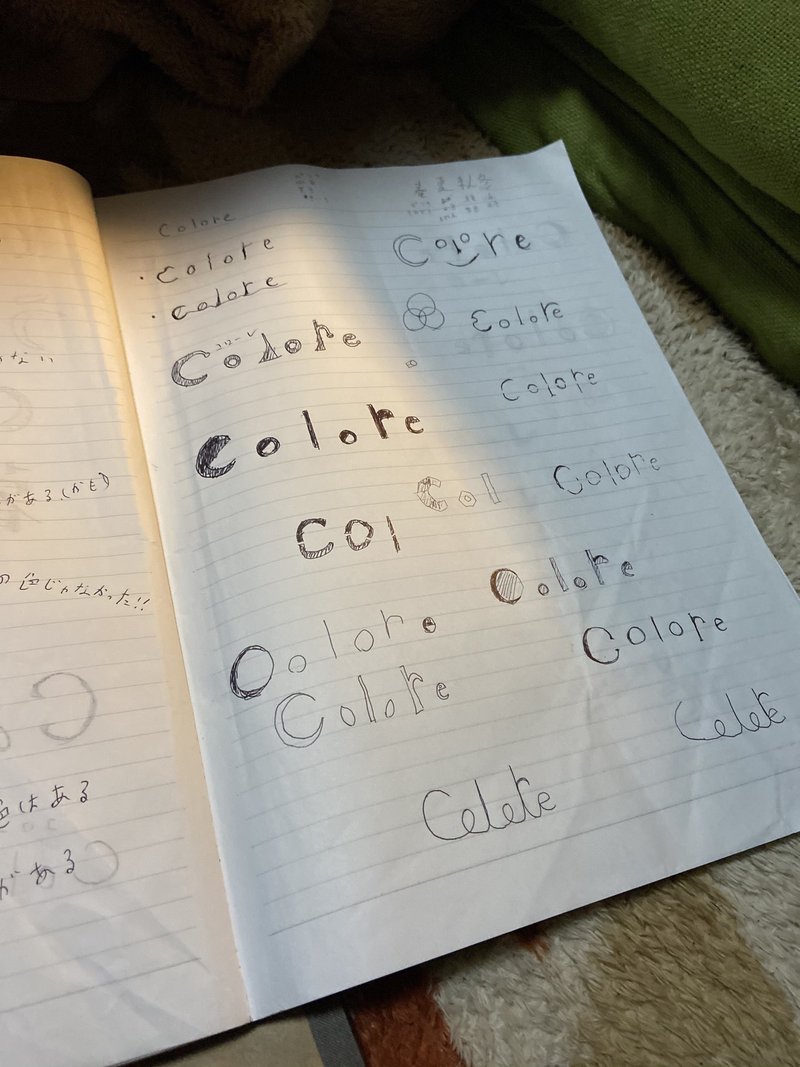 ない
がある(かも)
の色じゃなかった!!
色はある
がある
Colore
・Colore
・Colore
コリーレ
Colore
Colore
Col
Colore
Colore
Celete
春夏秋冬
Colore
Colore
Colore
Col
Colore
Colore
Colore
Celete